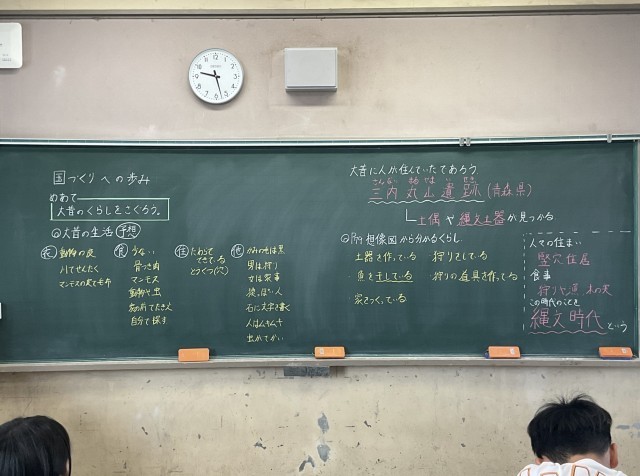 国づくりへの歩み
めあて
大昔のくらしをさぐろう。
大昔の生活 予想
衣 動物の皮
川でせんたく
マンモスの
食
骨つき肉
マンモス
動物や虫
自分で探す
住
できている
どうくつ(穴)
他
男は狩り
女は家事
石に文字を書く
虫がでかい
大昔に人が住んでいたであろう
さんない まる やま い せき
三内丸山遺跡(青森県)
土偶や縄文土器が見つかる。
想像図から分かるくらし
土器を作っている
魚を干している
家をつくっている
狩りをしている
狩りの道具を作っている
人々の住まい
竪穴住居
食事
狩りや漁、木の実
この時代のことを
縄文時代という